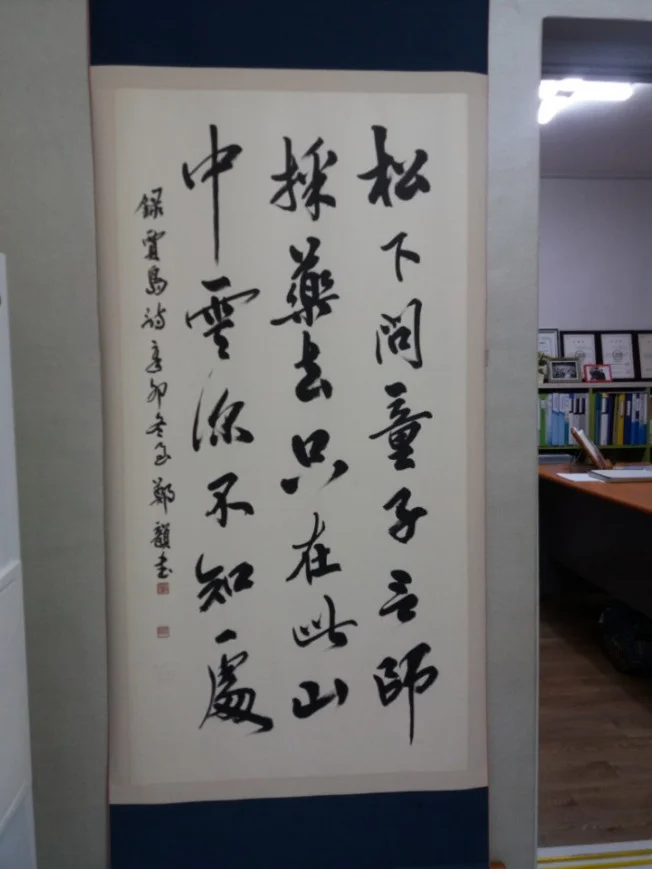 松下問童子言師
採藥去只在此山
中雲深不知處
錄賈島詩 辛卯冬至 鄭韻書